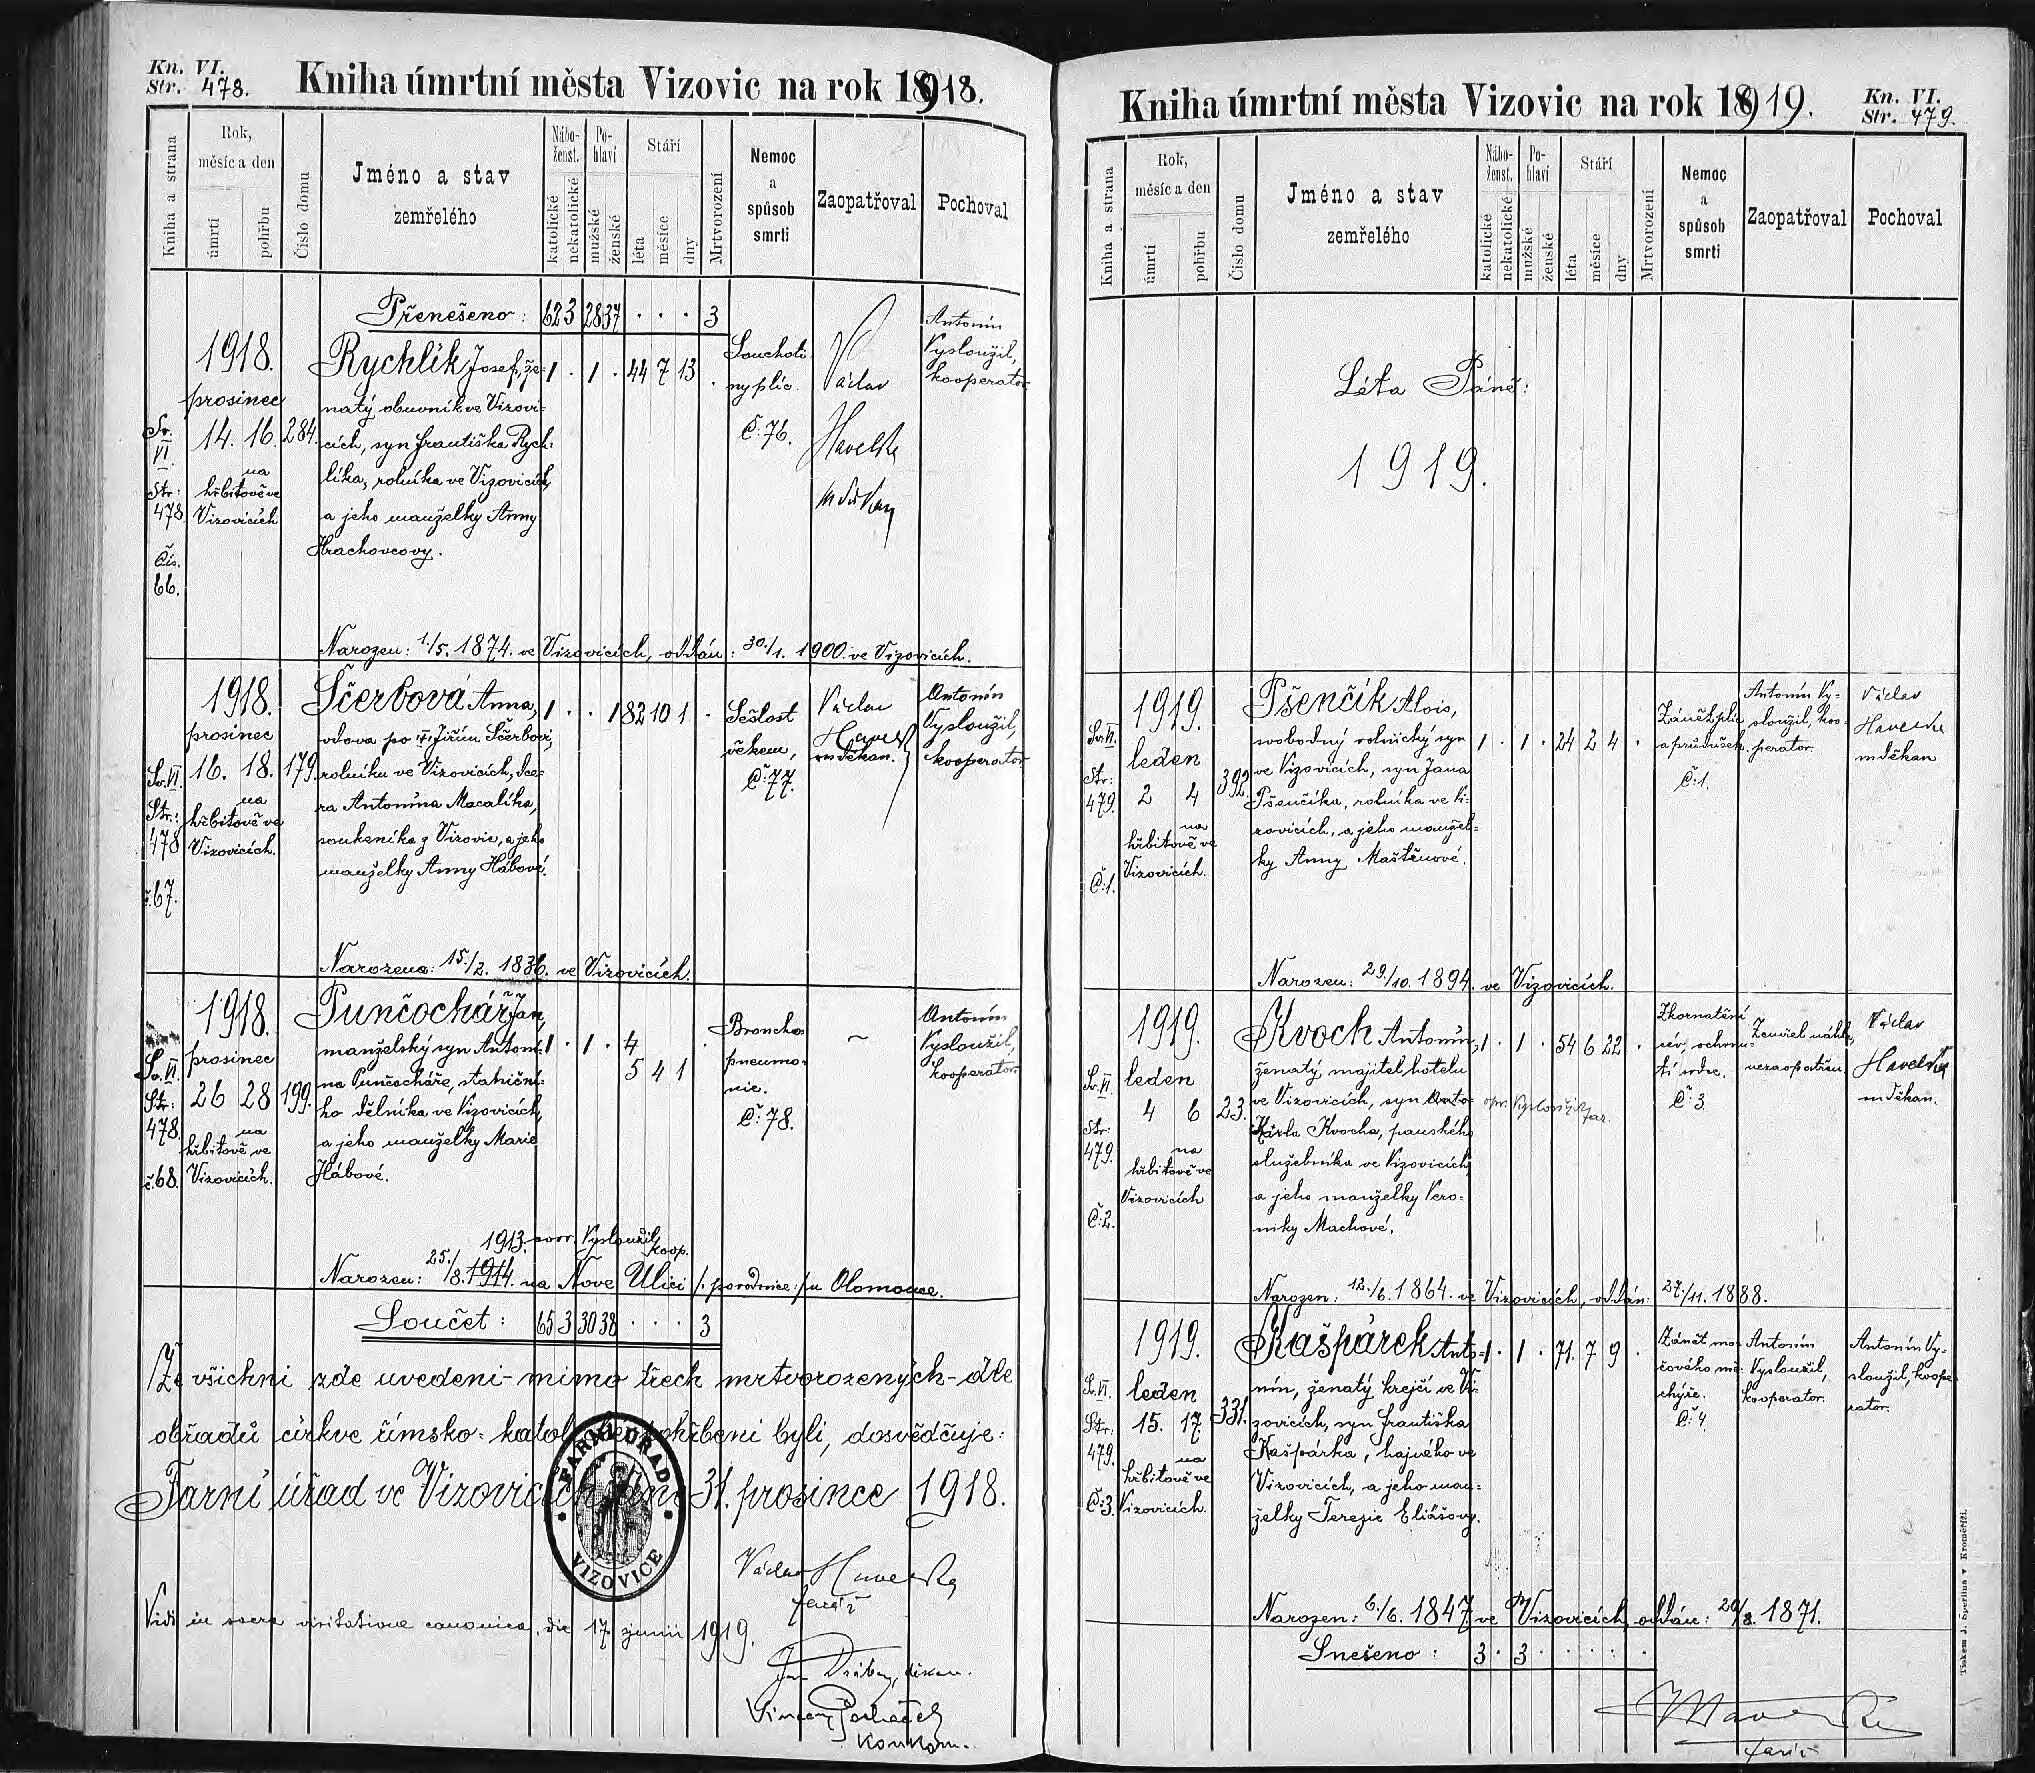 Kn. VI.
Str. 478.
Kniha úmrtní města Vizovic na rok 1918.
Kniha a strana
Rok,
měsíc a den
úmrtí
pohřbu
Číslo domu
Jméno a stav
zemřelého
Nábo-
ženst.
katolické
nekatolické
Po-
hlaví
mužské
ženské
Stáří
léta
měsíce
dny
Mrtvorození
Nemoc
a
spůsob
smrti
Zaopatřoval
Pochoval
Přenešeno: 62 3 28 37 . . . 3
Sv.
VI.
Str:
478
Čís.
66.
1918.
prosinec
14. 16.
na
hřbitově ve
Vizovicích
284.
Rychlík Josef, že-
natý obuvník ve Vizovi-
cích, syn Františka Rych-
líka, rolníka ve Vizovicích,
a jeho manželky Anny
Hrachovcovy.
1 . 1 . 44 7 13 .
Souchoti-
ny plic.
Č. 76.
Václav
Havelka
m. děkan
Antonín
Vysloužil,
kooperator
Narozen: 1./5. 1874. ve Vizovicích, oddán: 30./1. 1900. ve Vizovicích.
Sv. VI.
Str.:
478
č. 67.
1918.
prosinec
16. 18.
na
hřbitově ve
Vizovicích.
179.
Ščerbová Anna,
vdova po † Jiřím Ščerbovi,
rolníku ve Vizovicích, dce-
ra Antonína Macalíka,
soukeníka z Vizovic, a jeho
manželky Anny Hábové.
1 . . 1 82 10 1 .
Sešlost
věkem,
Č. 77.
Václav
Havelka
m. děkan.
Antonín
Vysloužil,
kooperator
Narozena: 15./2. 1836. ve Vizovicích.
Sv. VI.
Str:
478.
č. 68.
1918.
prosinec
26 28
na
hřbitově ve
Vizovicích.
199.
Punčochář Jan,
manželský syn Antoní-
na Punčocháře, staniční-
ho dělníka ve Vizovicích,
a jeho manželky Marie
Hábové.
1 . 1 . 4
5 4 1 .
Broncho-
pneumo-
nie.
Č. 78.
Antonín
Vysloužil,
kooperator
1913. Vysloužil
koop.
Narozen: 25./8. 1914. na Nové Ulici /: porodnice :/ u Olomouce.
Součet: 65 3 30 38 . . . 3
Že všichni zde uvedení - mimo třech mrtvorozených - dle
obřadů církve římsko-katol. pohřbeni byli, dosvědčuje:
Farní úřad ve Vizovicích dne 31. prosince 1918.
FARNÍ ÚŘAD
VIZOVICE
Václav Havelka
farář
Vidi in sacra visitatione canonica, die 17. junii 1919.
děkan.
Kniha úmrtní města Vizovic na rok 1919.
Kn. VI.
Str. 479.
Kniha a strana
Rok,
měsíc a den
úmrtí
pohřbu
Číslo domu
Jméno a stav
zemřelého
Nábo-
ženst.
katolické
nekatolické
Po-
hlaví
mužské
ženské
Stáří
léta
měsíce
dny
Mrtvorození
Nemoc
a
spůsob
smrti
Zaopatřoval
Pochoval
Léta Páně:
1919.
Sv. VI.
Str:
479.
Č. 1.
1919.
leden
2 4
na
hřbitově ve
Vizovicích.
392.
Pšenčík Alois,
svobodný rolnický syn
ve Vizovicích, syn Jana
Pšenčíka, rolníka ve Vi-
zovicích, a jeho manžel-
ky Anny Maštěnové.
1 . 1 . 24 2 4 .
Zánět plic
a průdušek.
Č. 1.
Antonín Vy-
sloužil, koo-
perator.
Václav
Havelka
m. děkan
Narozen: 29./10. 1894. ve Vizovicích.
Sv. VI.
Str:
479.
Č. 2.
1919.
leden
4 6
na
hřbitově ve
Vizovicích
23.
Kvoch Antonín,
ženatý majitel hotelu
ve Vizovicích, syn
Karla Kvocha, panského
služebníka ve Vizovicích,
a jeho manželky Vero-
niky Machové.
1 . 1 . 54 6 22 .
opr. Vysloužil far.
Zkornatění
cév, ochrnu-
tí srdce.
Č. 3.
Zemřel náhle,
nezaopatřen.
Václav
Havelka
m. děkan.
Narozen: 12./6. 1864. ve Vizovicích, oddán: 27./11. 1888.
Sv. VI.
Str:
479.
Č. 3.
1919.
leden
15. 17.
na
hřbitově ve
Vizovicích.
331.
Kašpárek Anto-
nín, ženatý krejčí ve Vi-
zovicích, syn Františka
Kašpárka, hajného ve
Vizovicích, a jeho man-
želky Terezie Eliášovy.
1 . 1 . 71. 7 9 .
Zánět mo-
čového mě-
chýře.
Č. 4.
Antonín
Vysloužil,
kooperator.
Antonín Vy-
sloužil, koope-
rator.
Narozen: 6./6. 1847. ve Vizovicích, oddán: 20/8. 1871.
Snešeno: 3 . 3 . . . . .
Havelka
farář
Tiskem J. Sperlina v Kroměříži.